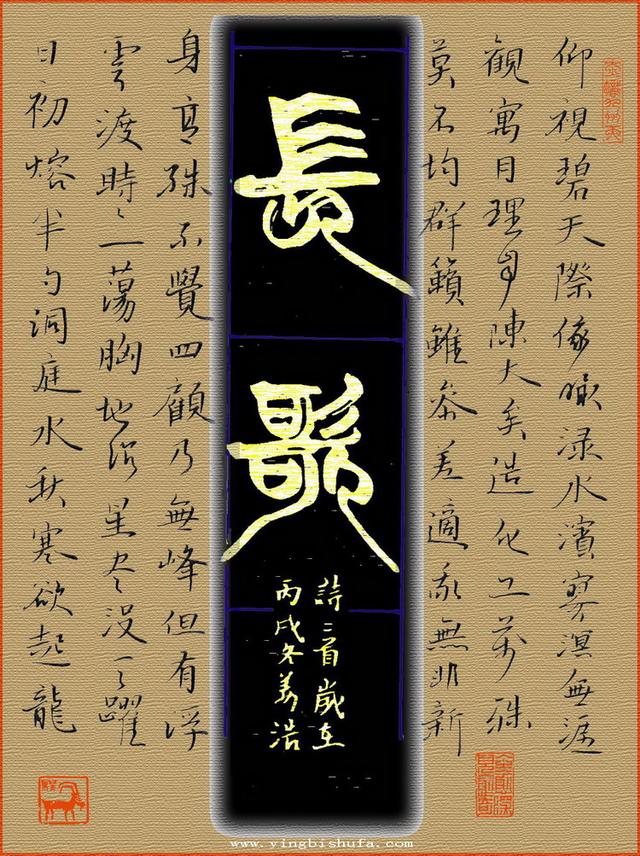 仰視碧天際俯瞰渌水濱寥溟無涯
觀寓目理自陳大矣造化工萬殊
莫不均群籟雖參差適我無非新
長歌
詩二首歲在
丙戌冬浩
身高殊不覺四顧乃無峰但有浮
雲渡時〻一蕩胸地沉星盡沒天躍
日初熔半勺洞庭水秋寒欲起龍
www.yingbishufa.com